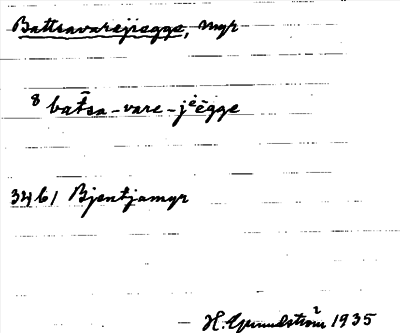 Battsavarejiegge, mgr
8 batsa-vare-jiegge
3461 Bjentjamyr
H. Grundström 1935